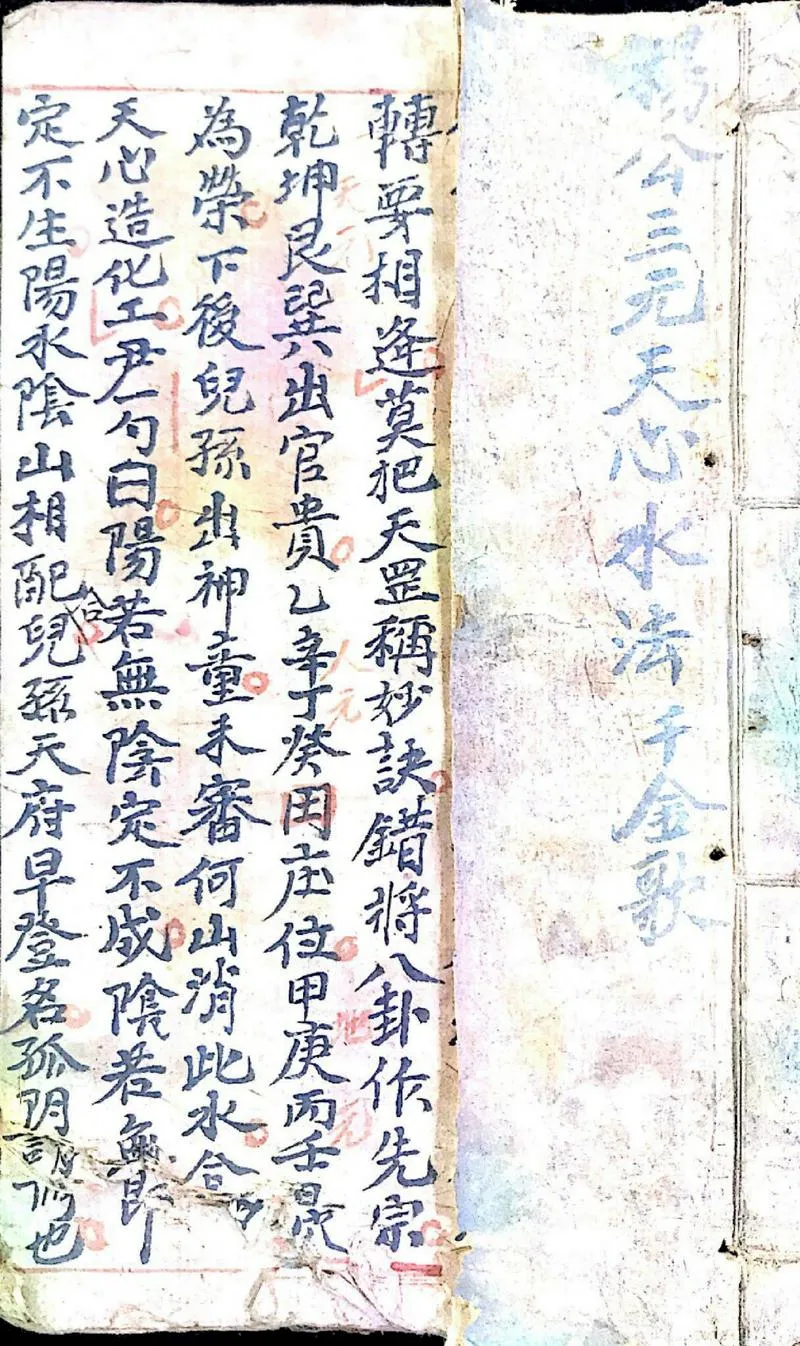 楊公三元天心水法千金歌
轉要相逢莫把天罡稱妙訣錯將八卦作先宗
乾坤艮巽出官貴乙辛丁癸田庄位甲庚丙壬最
為榮下後兒孫出神童未審何山消此水合
天心造化工尹勺曰陽若無陰定不成陰若無即
定不生陽水陰山相配兒孫天府早登名孤陽
合
天元
人元
地元